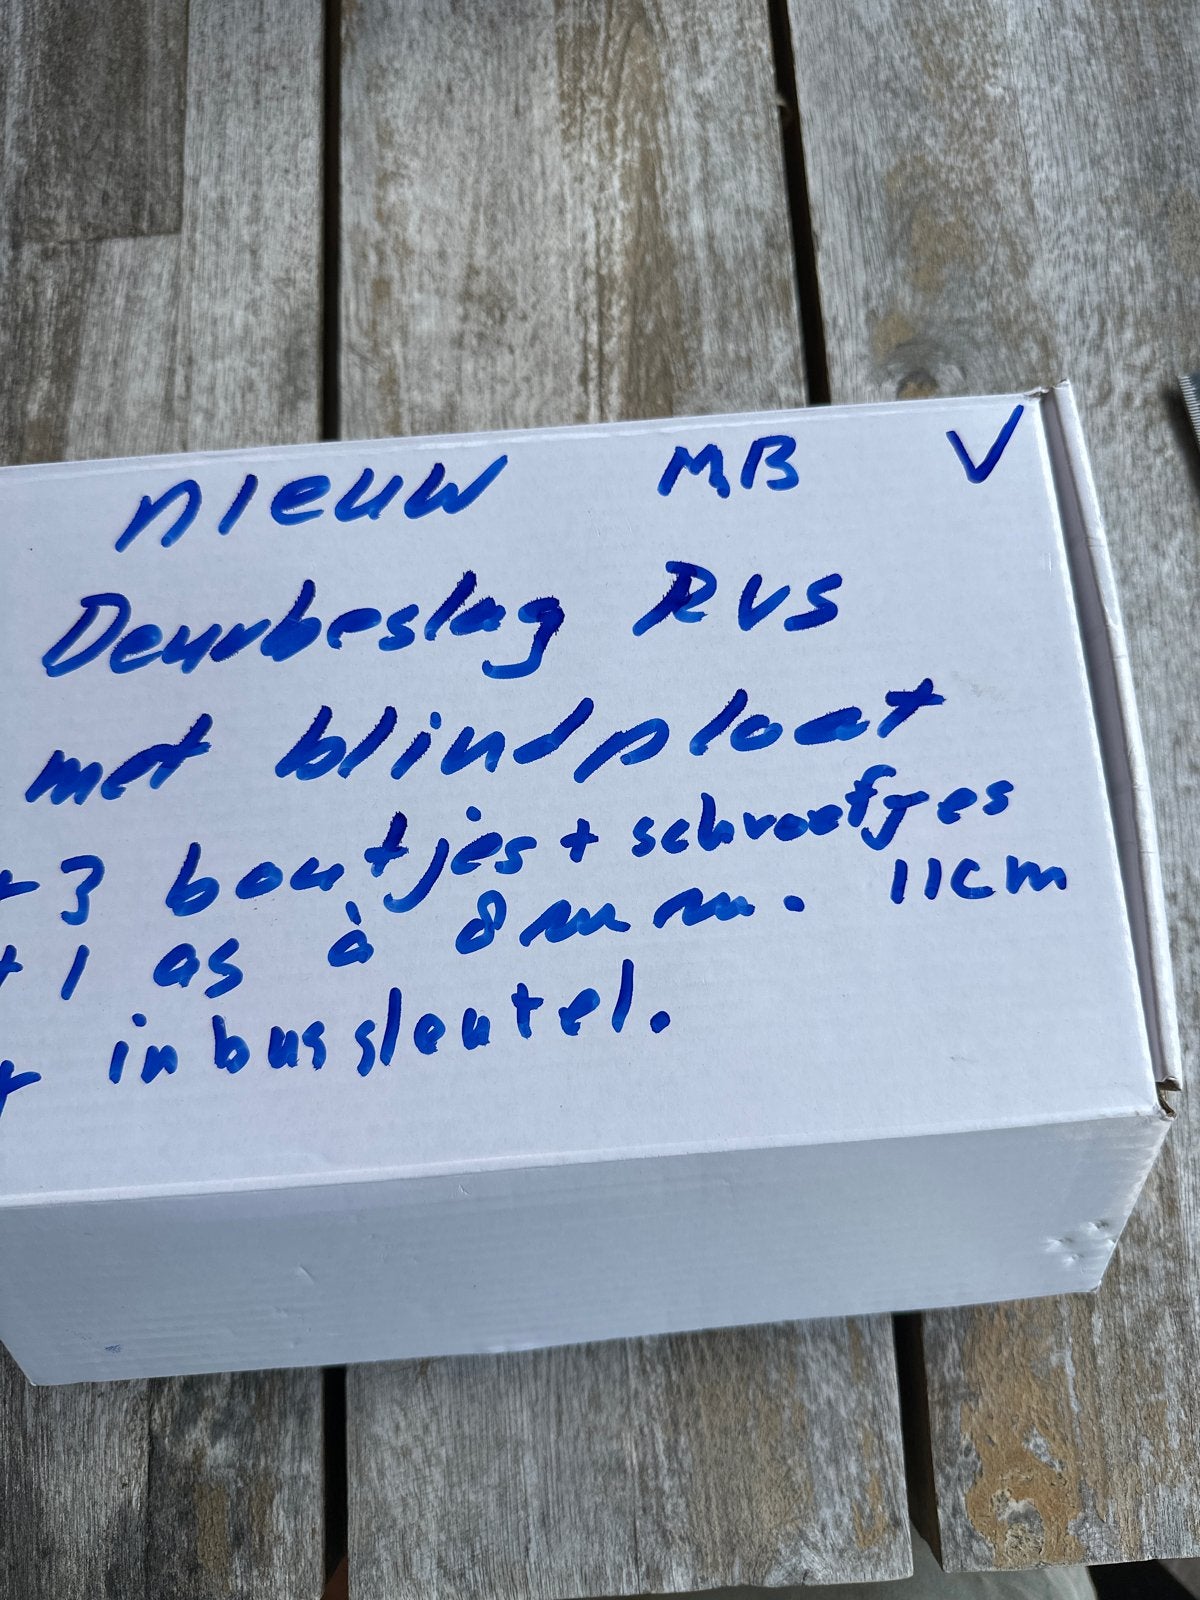 nieuw MB V
Deurbeslag RVS
met blindplaat
+ 3 boutjes + schroefjes
+ 1 as à 8 mm. 11cm
+ inbussleutel.